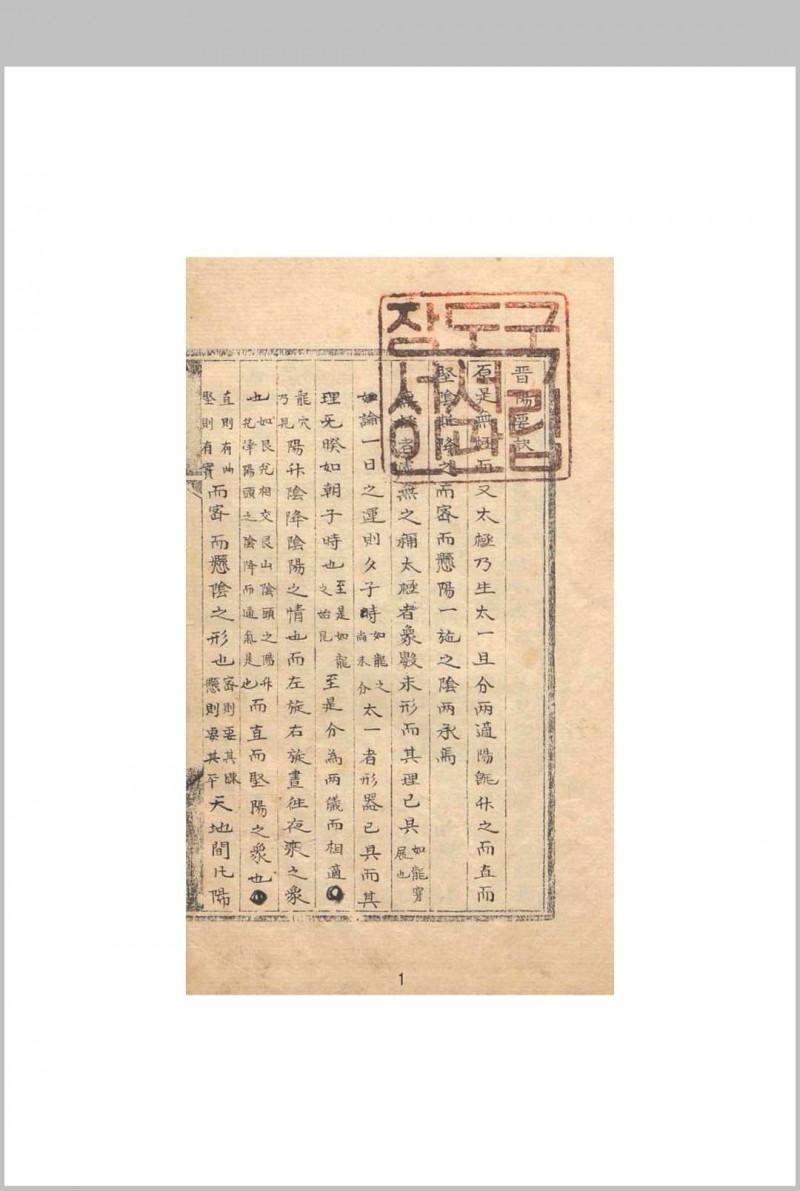 晋陽要訣
原是無極而又太極乃生太一且分兩適陽能升之而直而
堅陰能降之而密而懸陽一施之陰兩承焉
無極者虛無之稱太極者象數未形而其理已具如龍穿展也
如論一日之運則夕子時如龍之尚未分太一者形器已具而其
理旡暌如朝子時也至是如龍之始見至是分為兩儀而相適
龍穴乃見陽升陰降陰陽之情也而左旋右旋晝往夜來之象
也如艮兌相交艮山陰頭之陽升兌澤陽頭之陰降而通氣是也而直而堅陽之象也
直則有曲堅則有實而密而懸陰之形也密則要其疎懸則要其平天地間凡陽
국립중앙도서관장서인
1